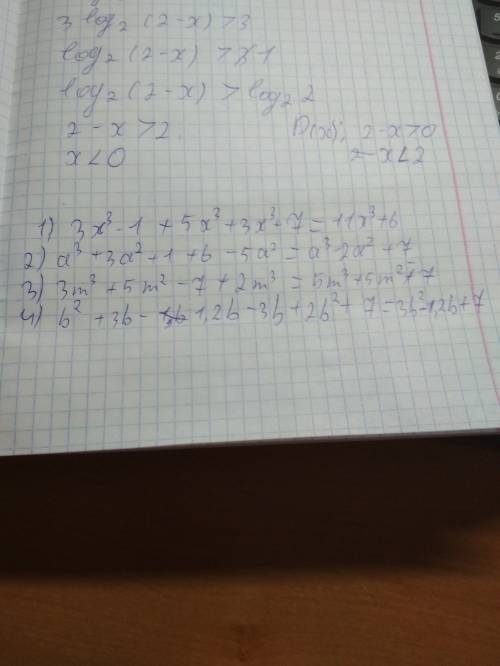 3 log₂ (2-x) > 3
log₂ (2-x) > 1
log₂ (2-x) > log₂ 2
2 - x > 2 D(x): 2-x>0
x < 0 x < 2
1) 3x³ - 1 + 5x³ + 3x³ + 7 = 11x³ + 6
2) a³ + 3a² - 1 + 6 - 5a² = a³ - 2a² + 7
3) 3m³ + 5m² - 7 + 2m³ = 5m³ + 5m² - 7
4) b² + 3b - 1,2b - 3b + 2b² + 7 = 3b² - 1,2b + 7